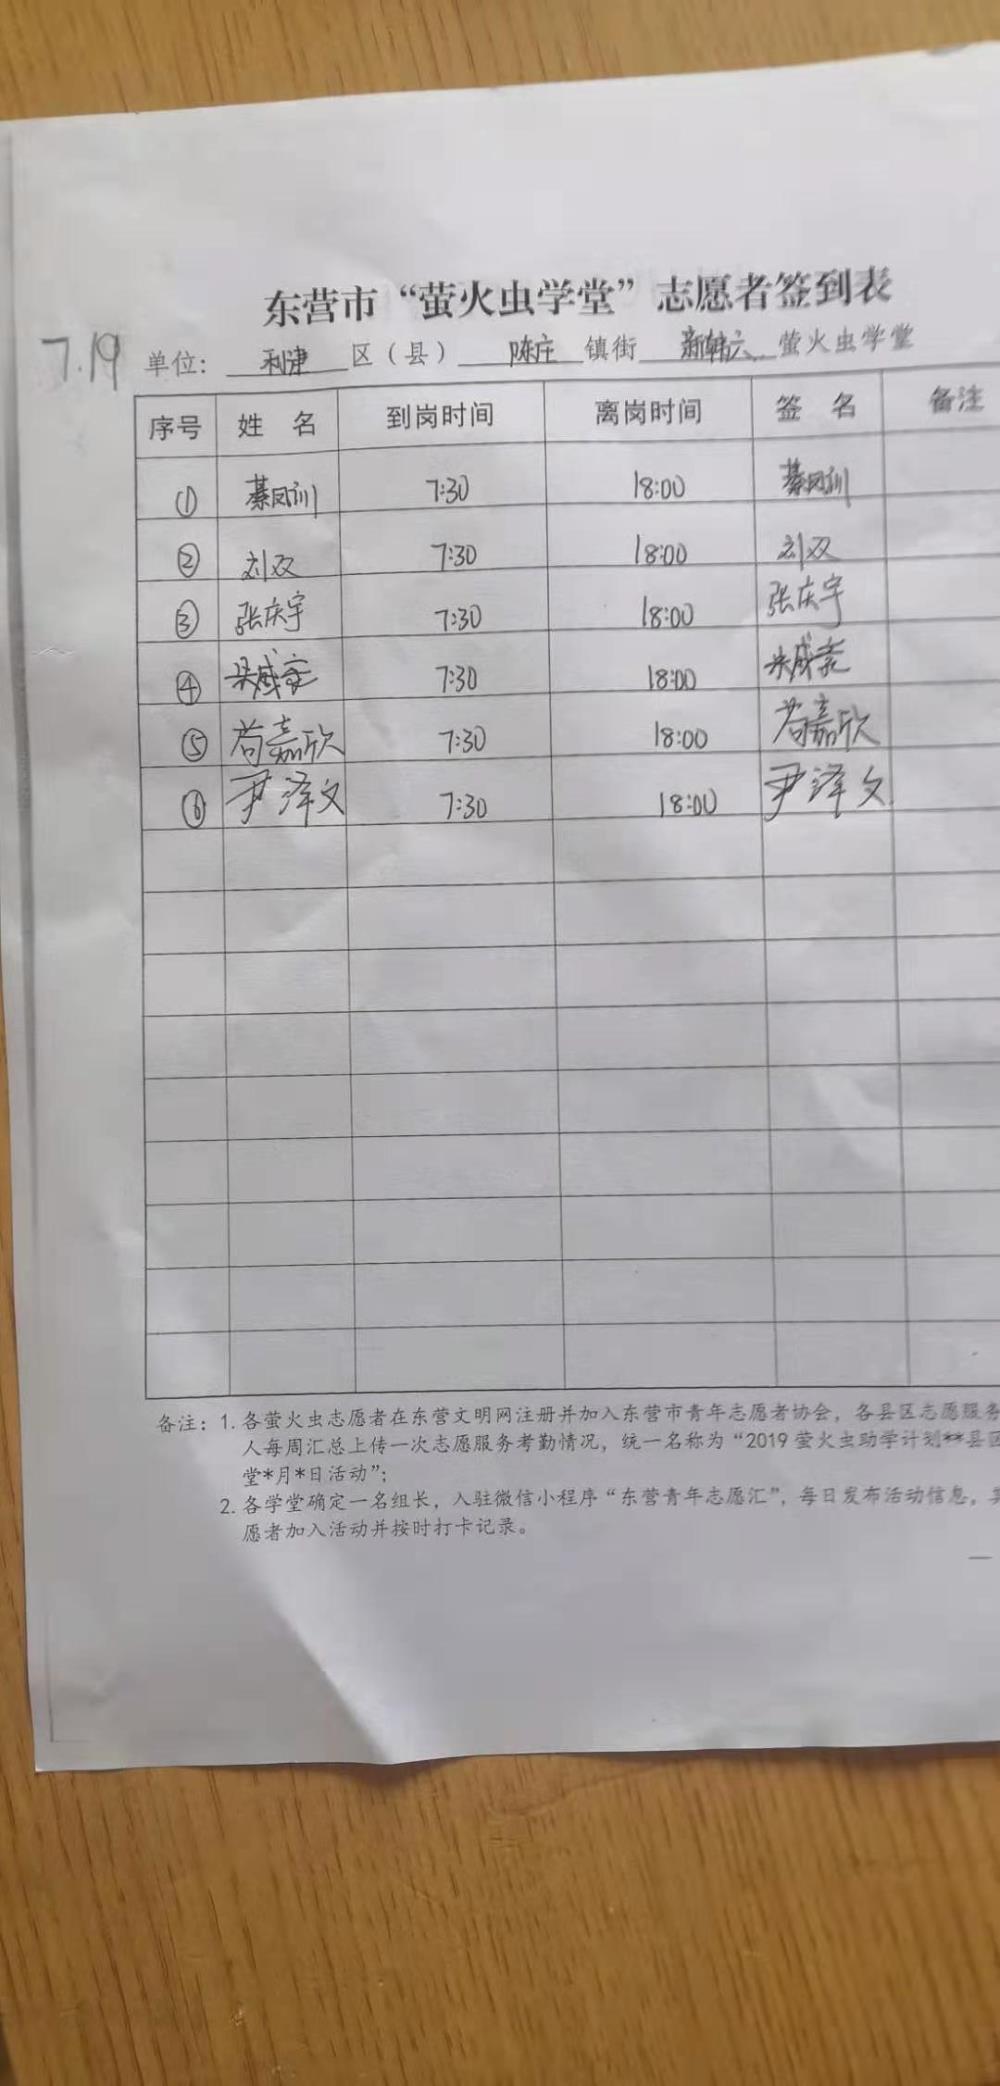 东营市“萤火虫学堂”志愿者签到表
7.19 单位： 利津 区（县） 陈庄 镇街 新韩六 萤火虫学堂
序号 姓 名 到岗时间 离岗时间 签 名 备注
① 綦凤训 7:30 18:00 綦凤训
② 刘双 7:30 18:00 刘双
③ 张庆宇 7:30 18:00 张庆宇
④ 7:30 18:00
⑤ 苟嘉欣 7:30 18:00 苟嘉欣
⑥ 尹泽文 7:30 18:00 尹泽文
备注：1. 各萤火虫志愿者在东营文明网注册并加入东营市青年志愿者协会，各县区志愿服务
人每周汇总上传一次志愿服务考勤情况，统一名称为“2019 萤火虫助学计划**县区
堂*月*日活动”；
2. 各学堂确定一名组长，入驻微信小程序“东营青年志愿汇”，每日发布活动信息，其
愿者加入活动并按时打卡记录。